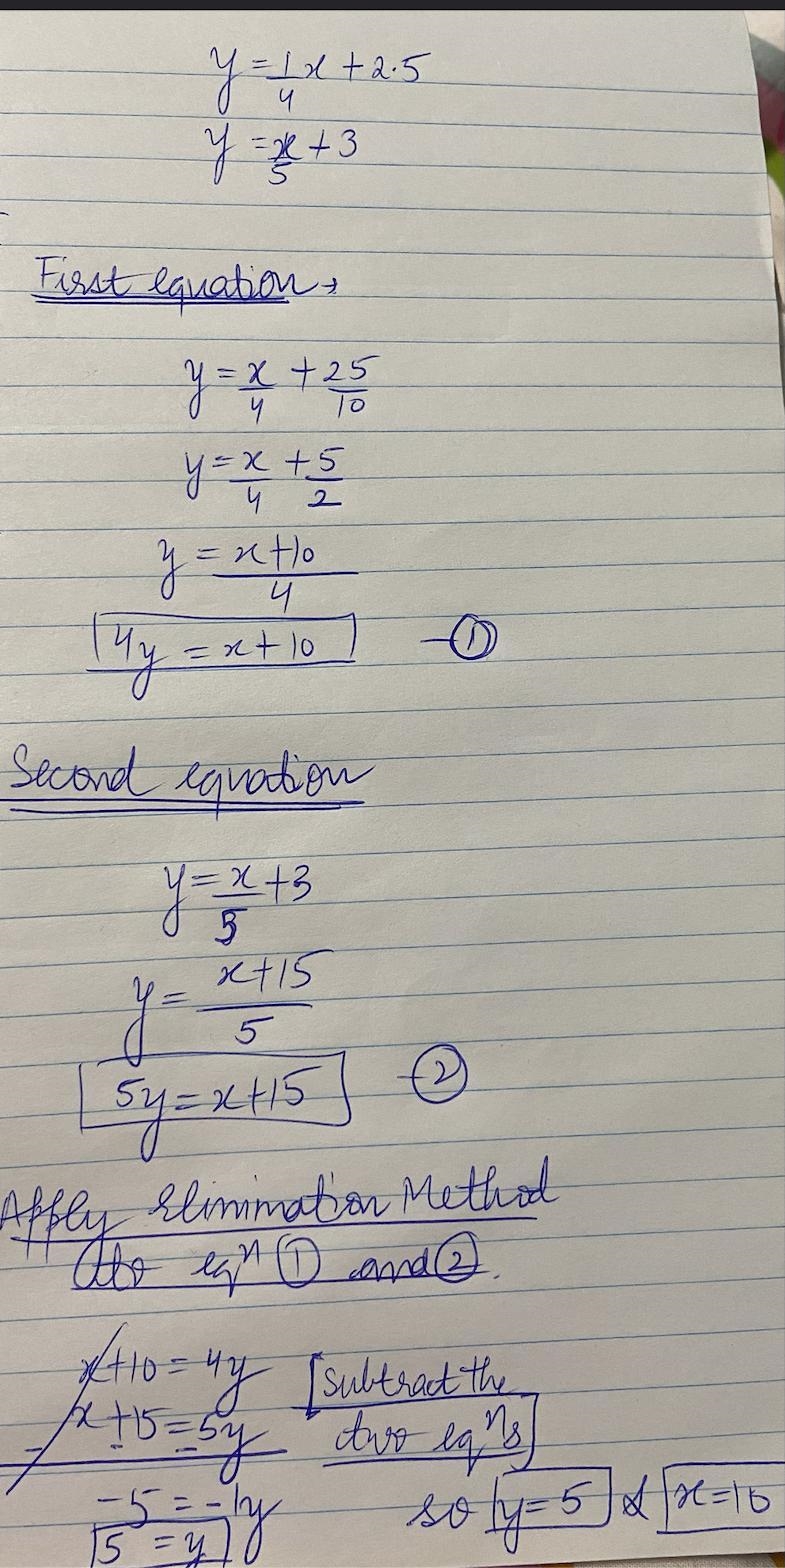 y = 1/4 x + 2.5
y = x/5 + 3
First equation →
y = x/4 + 25/10
y = x/4 + 5/2
y = x+10/4
4y = x+10 -①
Second equation
y = x/5 + 3
y = x+15/5
5y = x+15 -②
Apply Elimination Method
to eqⁿ ① and ②.
x+10 = 4y [Subtract the
- x+15 = 5y two eqⁿs]
- -
-5 = -1y
5 = y so y = 5 & x = 10